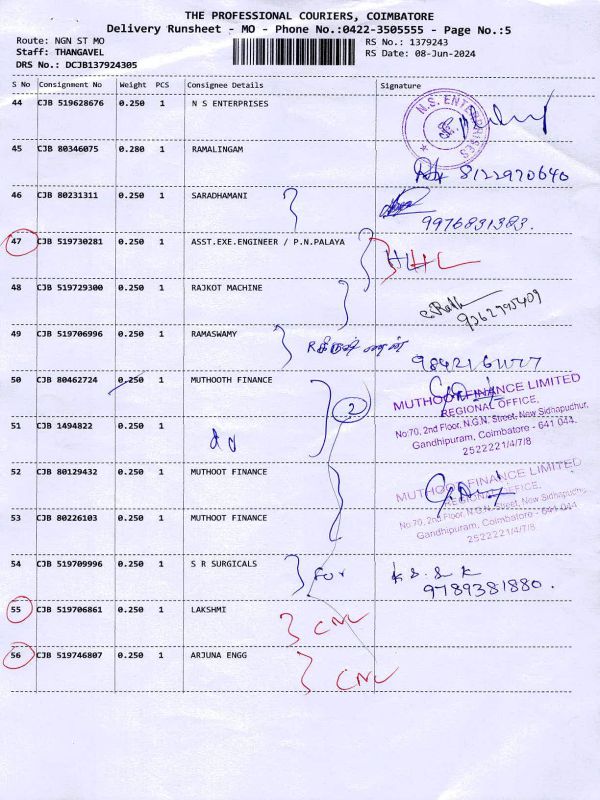 THE PROFESSIONAL COURIERS, COIMBATORE
Delivery Runsheet - MO - Phone No.:0422-3505555 - Page No.:5
Route: NGN ST MO
RS No.: 1379243
Staff: THANGAVEL
RS Date: 08-Jun-2024
DRS No.: DCJB137924305
S No Consignment No Weight PCS Consignee Details Signature
44 CJB 519628676 0.250 1 N S ENTERPRISES
N.S. ENTERPRISES
45 CJB 80346075 0.280 1 RAMALINGAM
8122970640
46 CJB 80231311 0.250 1 SARADHAMANI
9976831383.
47 CJB 519730281 0.250 1 ASST.EXE.ENGINEER / P.N.PALAYA
48 CJB 519729300 0.250 1 RAJKOT MACHINE
49 CJB 519706996 0.250 1 RAMASWAMY
50 CJB 80462724 0.250 1 MUTHOOTH FINANCE
2
MUTHOOT FINANCE LIMITED
REGIONAL OFFICE,
No:70, 2nd Floor, N.G.N. Street, New Sidhapuchur,
Gandhipuram, Coimbatore - 641 044.
2522221/4/7/8
51 CJB 1494822 0.250 1
52 CJB 80129432 0.250 1 MUTHOOT FINANCE
MUTHOOT FINANCE LIMITED
REGIONAL OFFICE,
No:70, 2nd Floor, N.G.N. Street, New Sidhapuchu
Gandhipuram, Coimbatore - 641 044
2522221/4/7/8
53 CJB 80226103 0.250 1 MUTHOOT FINANCE
54 CJB 519709996 0.250 1 S R SURGICALS
For K.S.S.K
9789381880.
55 CJB 519706861 0.250 1 LAKSHMI
CNL
56 CJB 519746807 0.250 1 ARJUNA ENGG
CNL